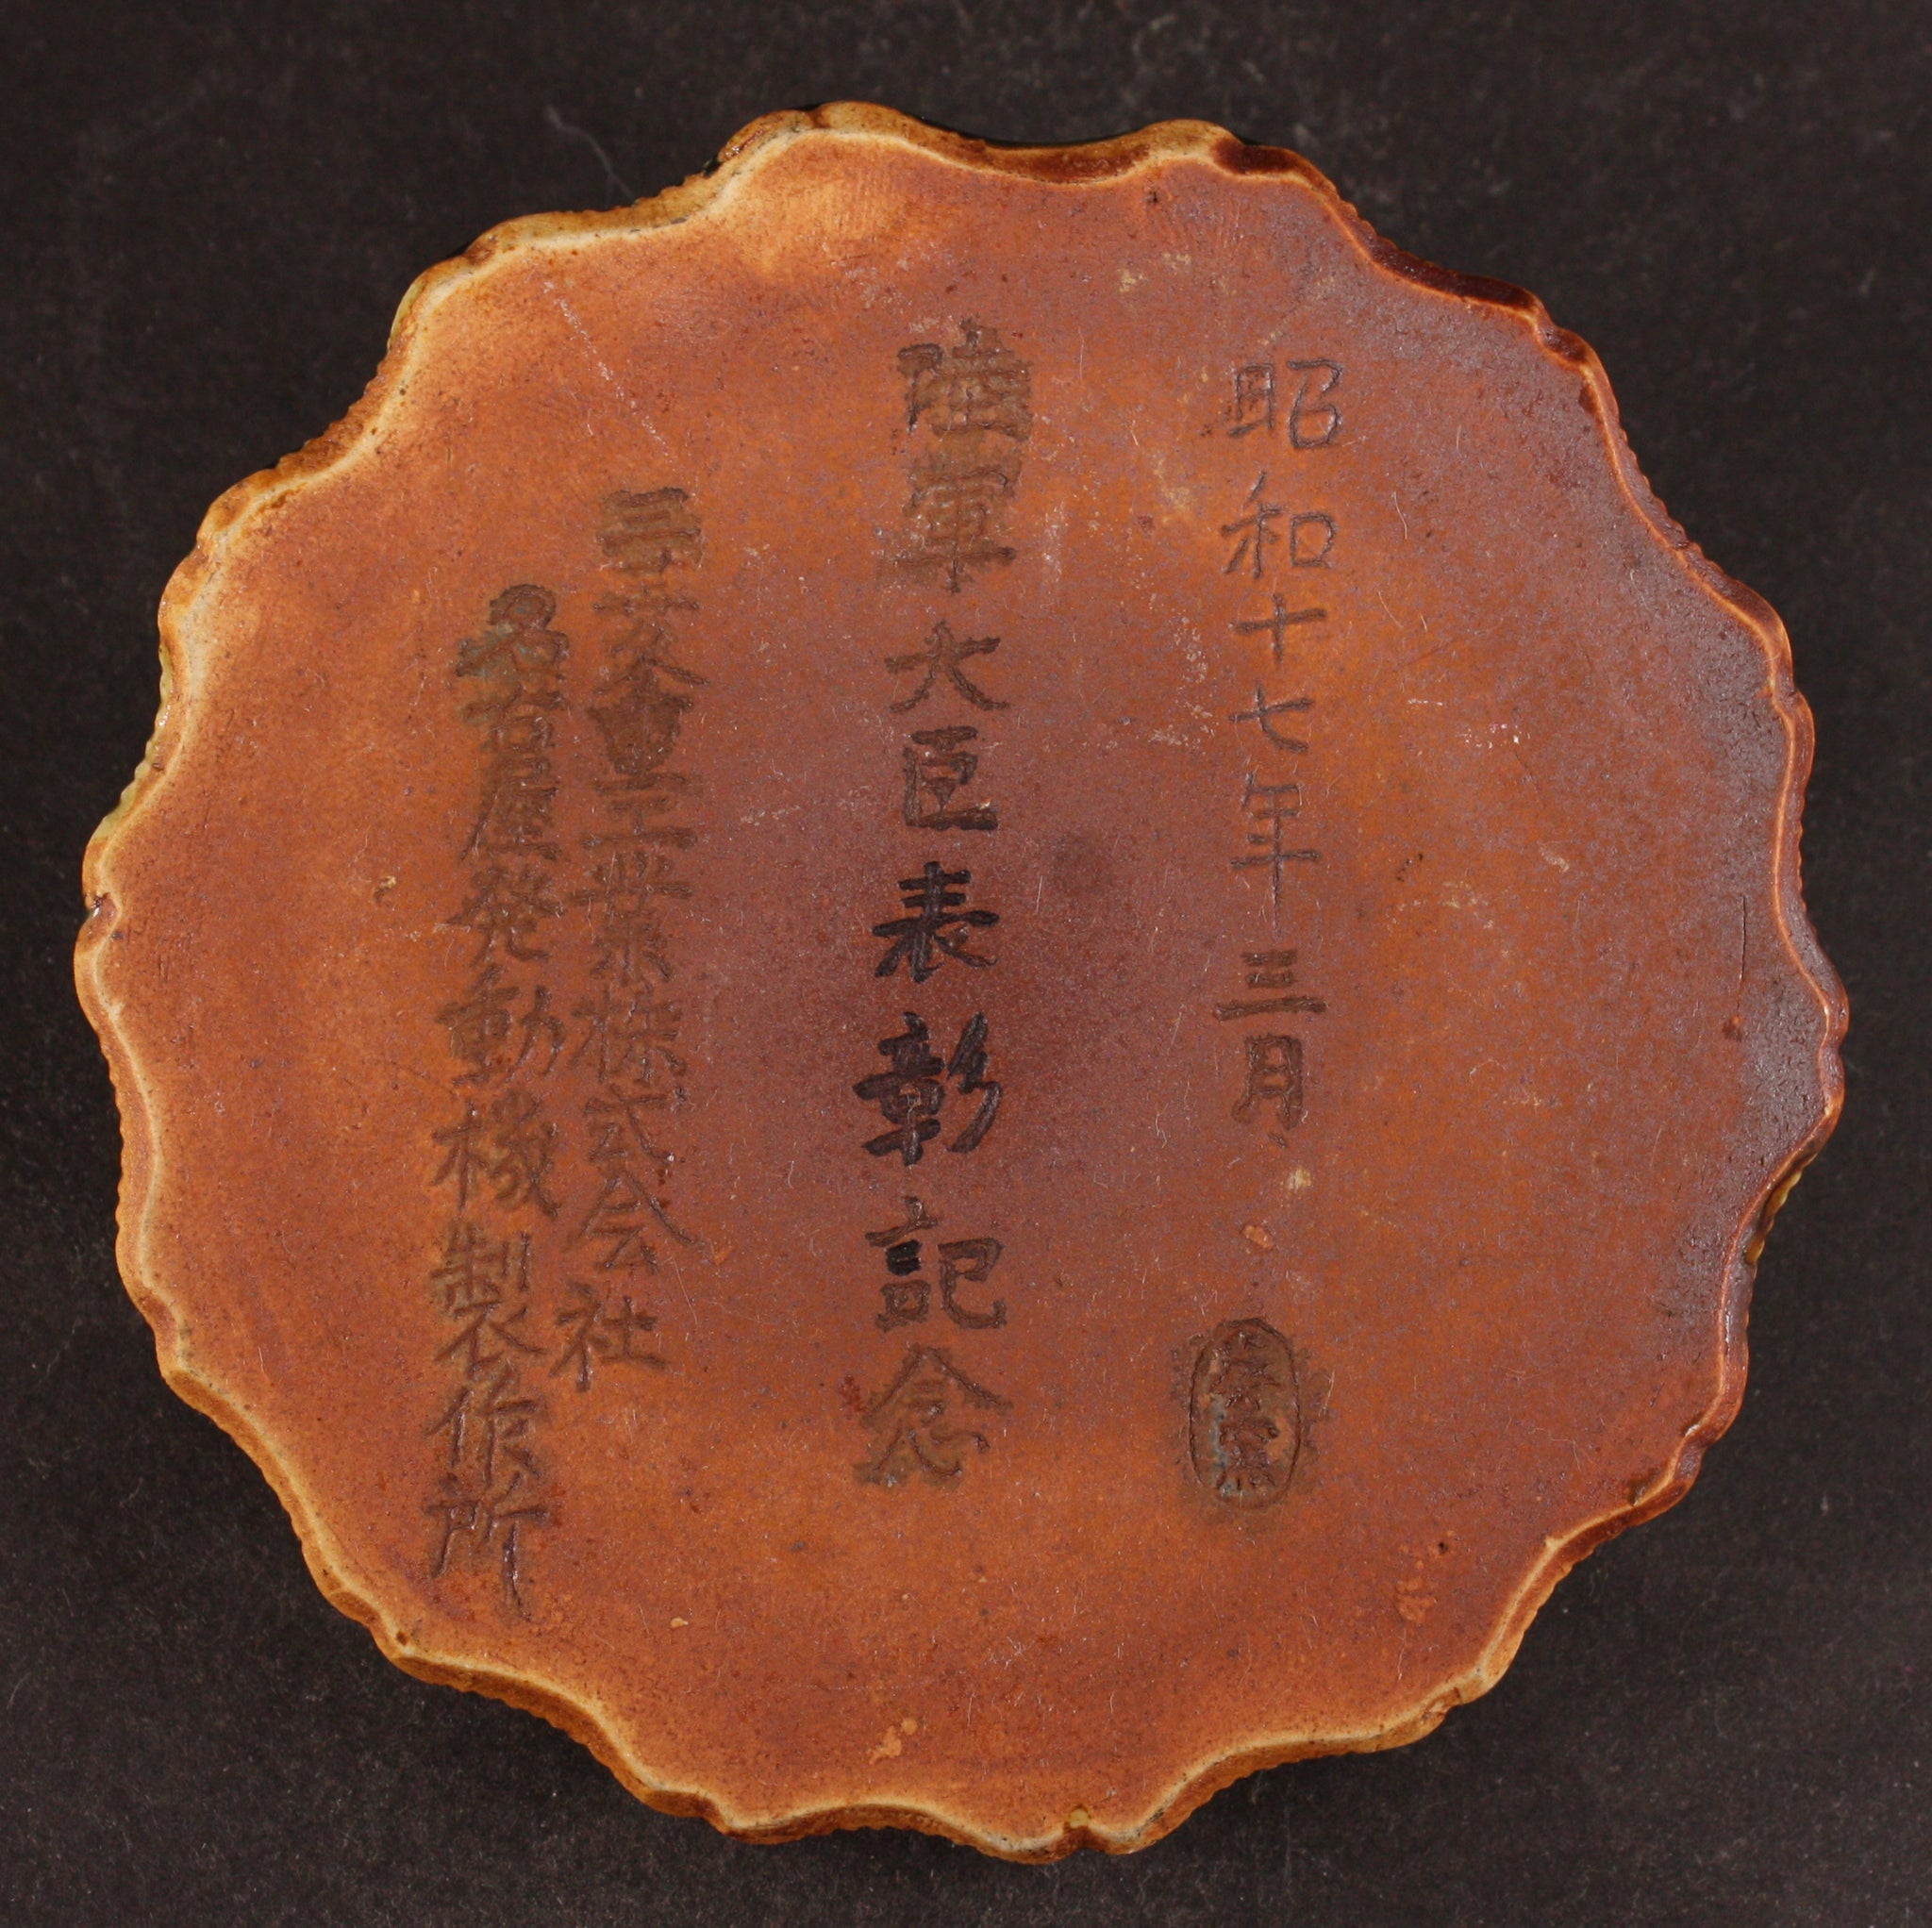 昭和十七年三月
陸軍大臣表彰記念
三菱重工業株式会社
名古屋発動機製作所